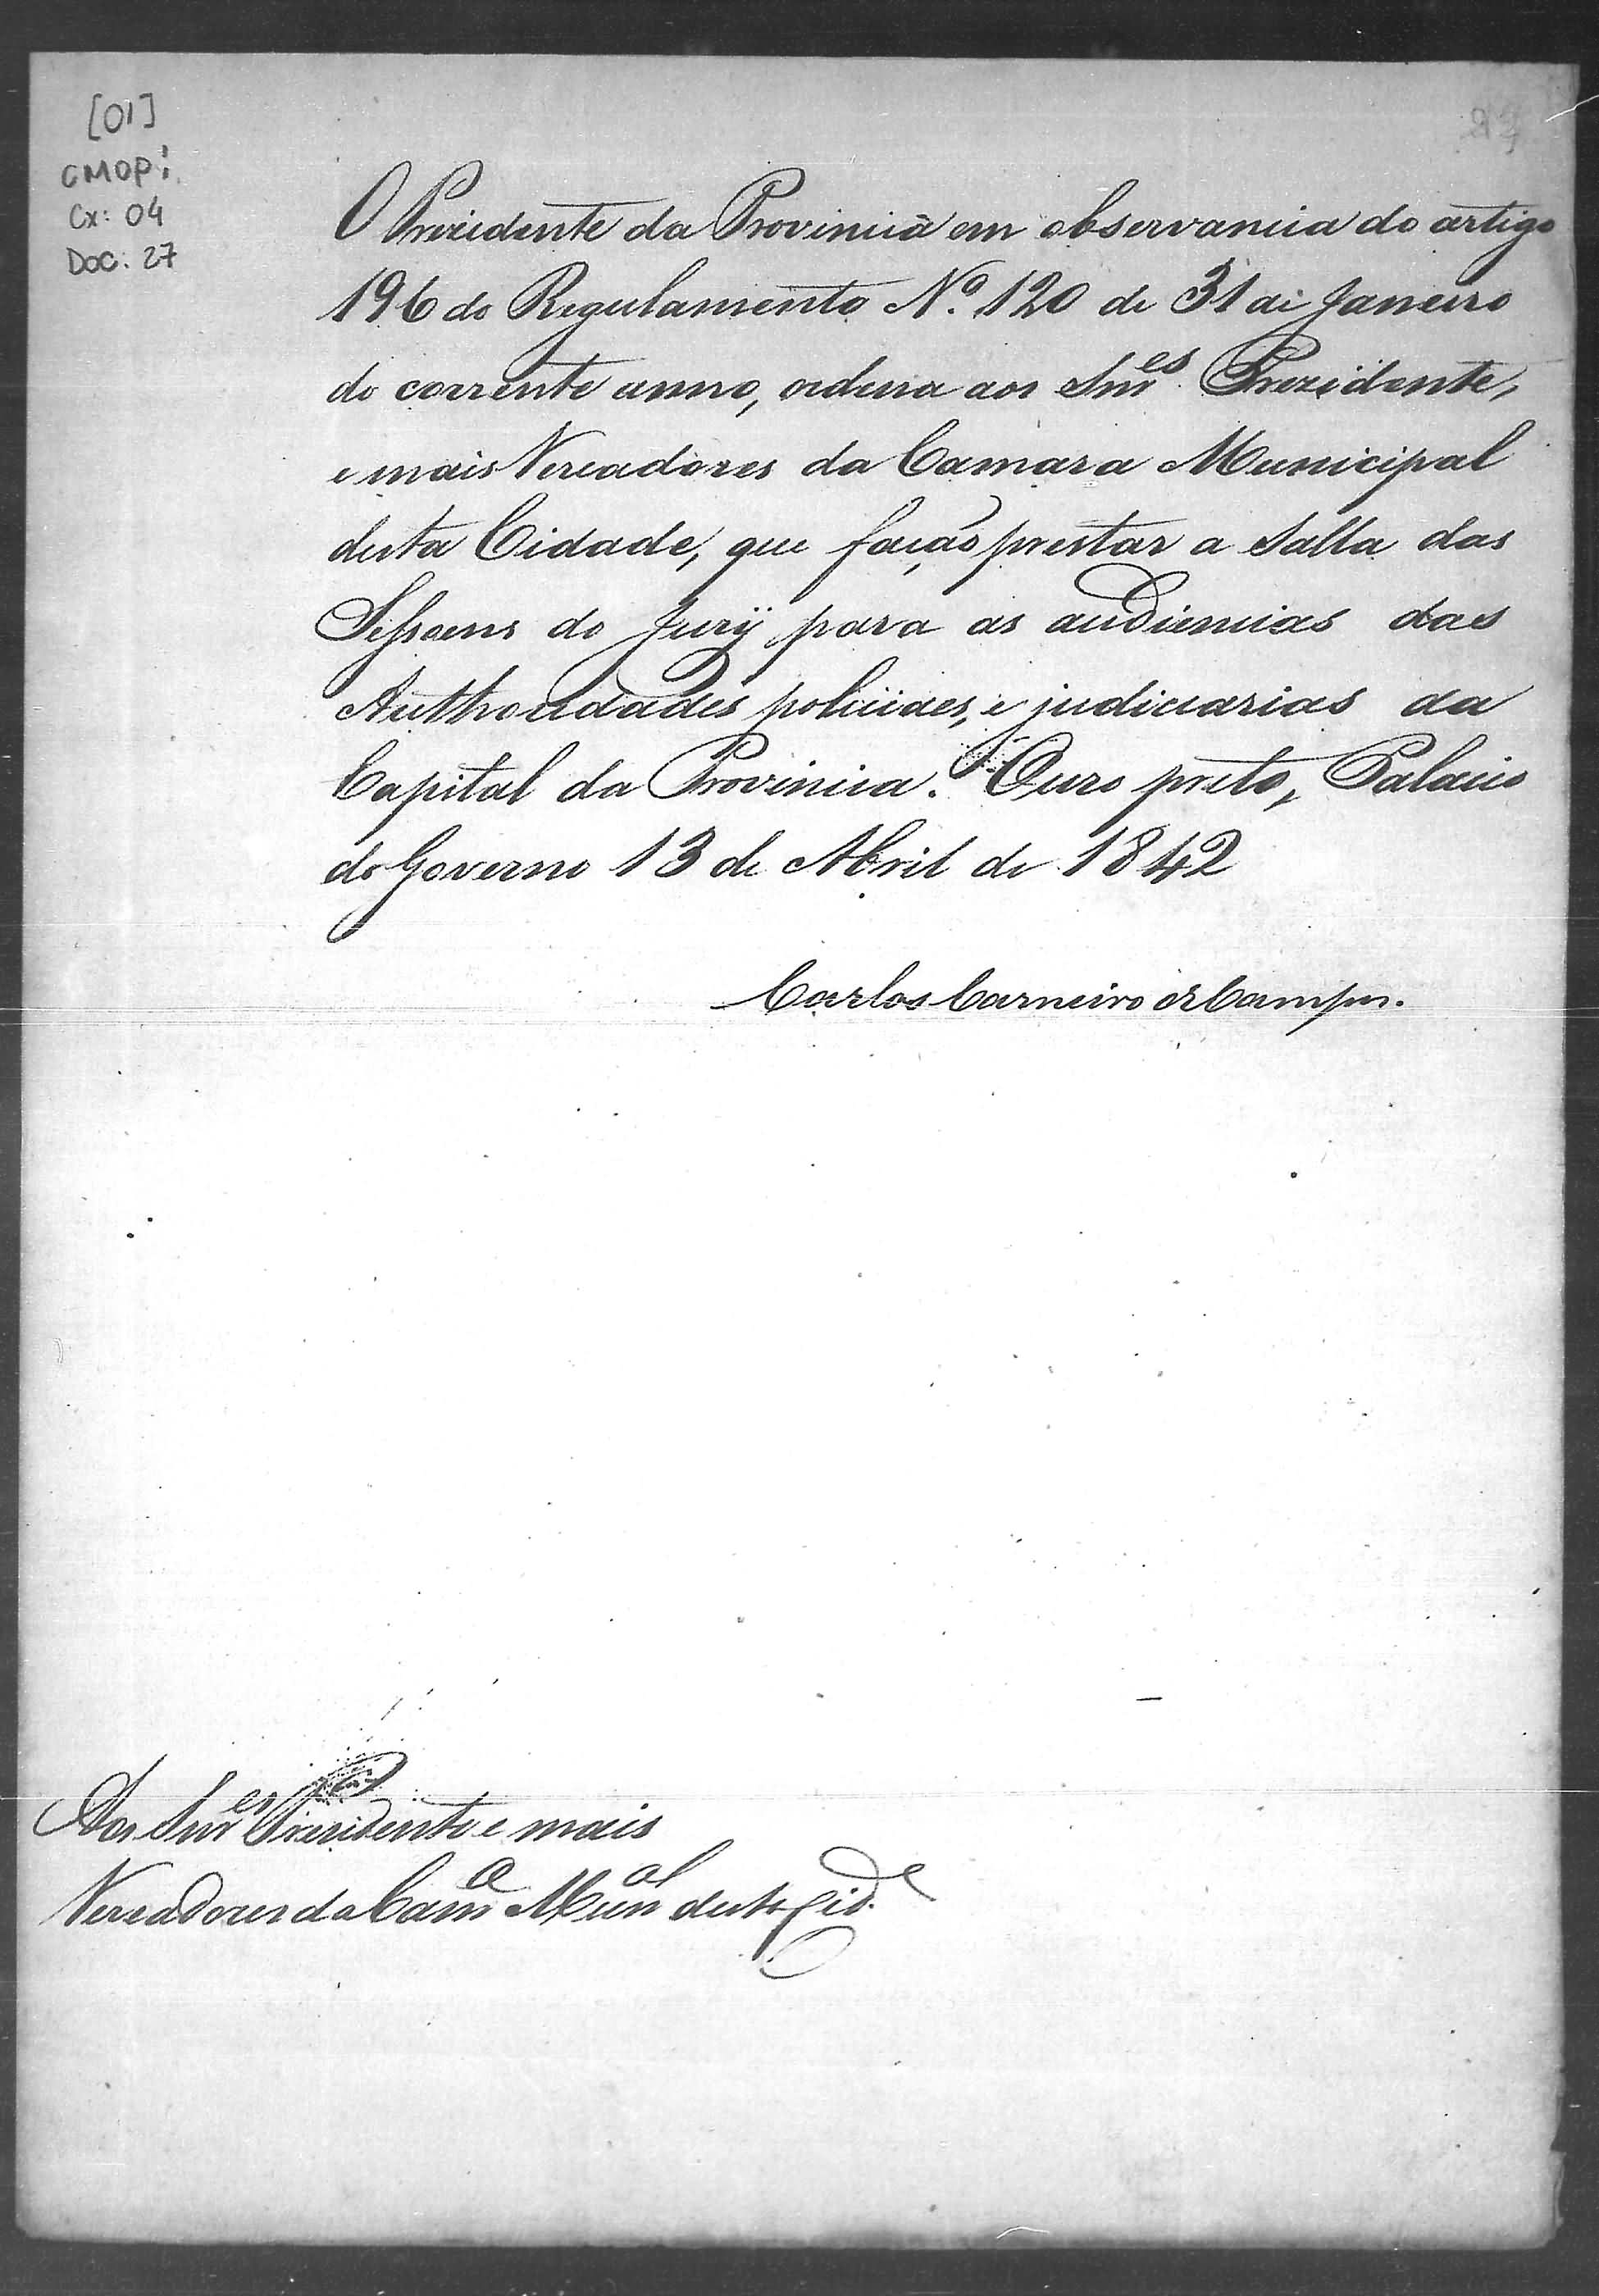 [01]
CMOP:
Cx: 04
Doc: 27
27
O Prezidente da Provincia em observancia do artigo
196 do Regulamento Nº. 120 de 31 de Janeiro
do corrente anno, ordena aos Snr.es Prezidente,
e mais Vereadores da Camara Municipal
desta Cidade, que fação prestar a Salla das
Sessoens do Jury para as audiencias das
Authoridades policiaes, e judiciarias da
Capital da Provincia. Ouro preto, Palacio
do Governo 13 de Abril de 1842
Carlos Carneiro de Campos.
Aos Snr.es Prezidente e mais
Vereadores da Cam.a Mun.al desta Cid.e